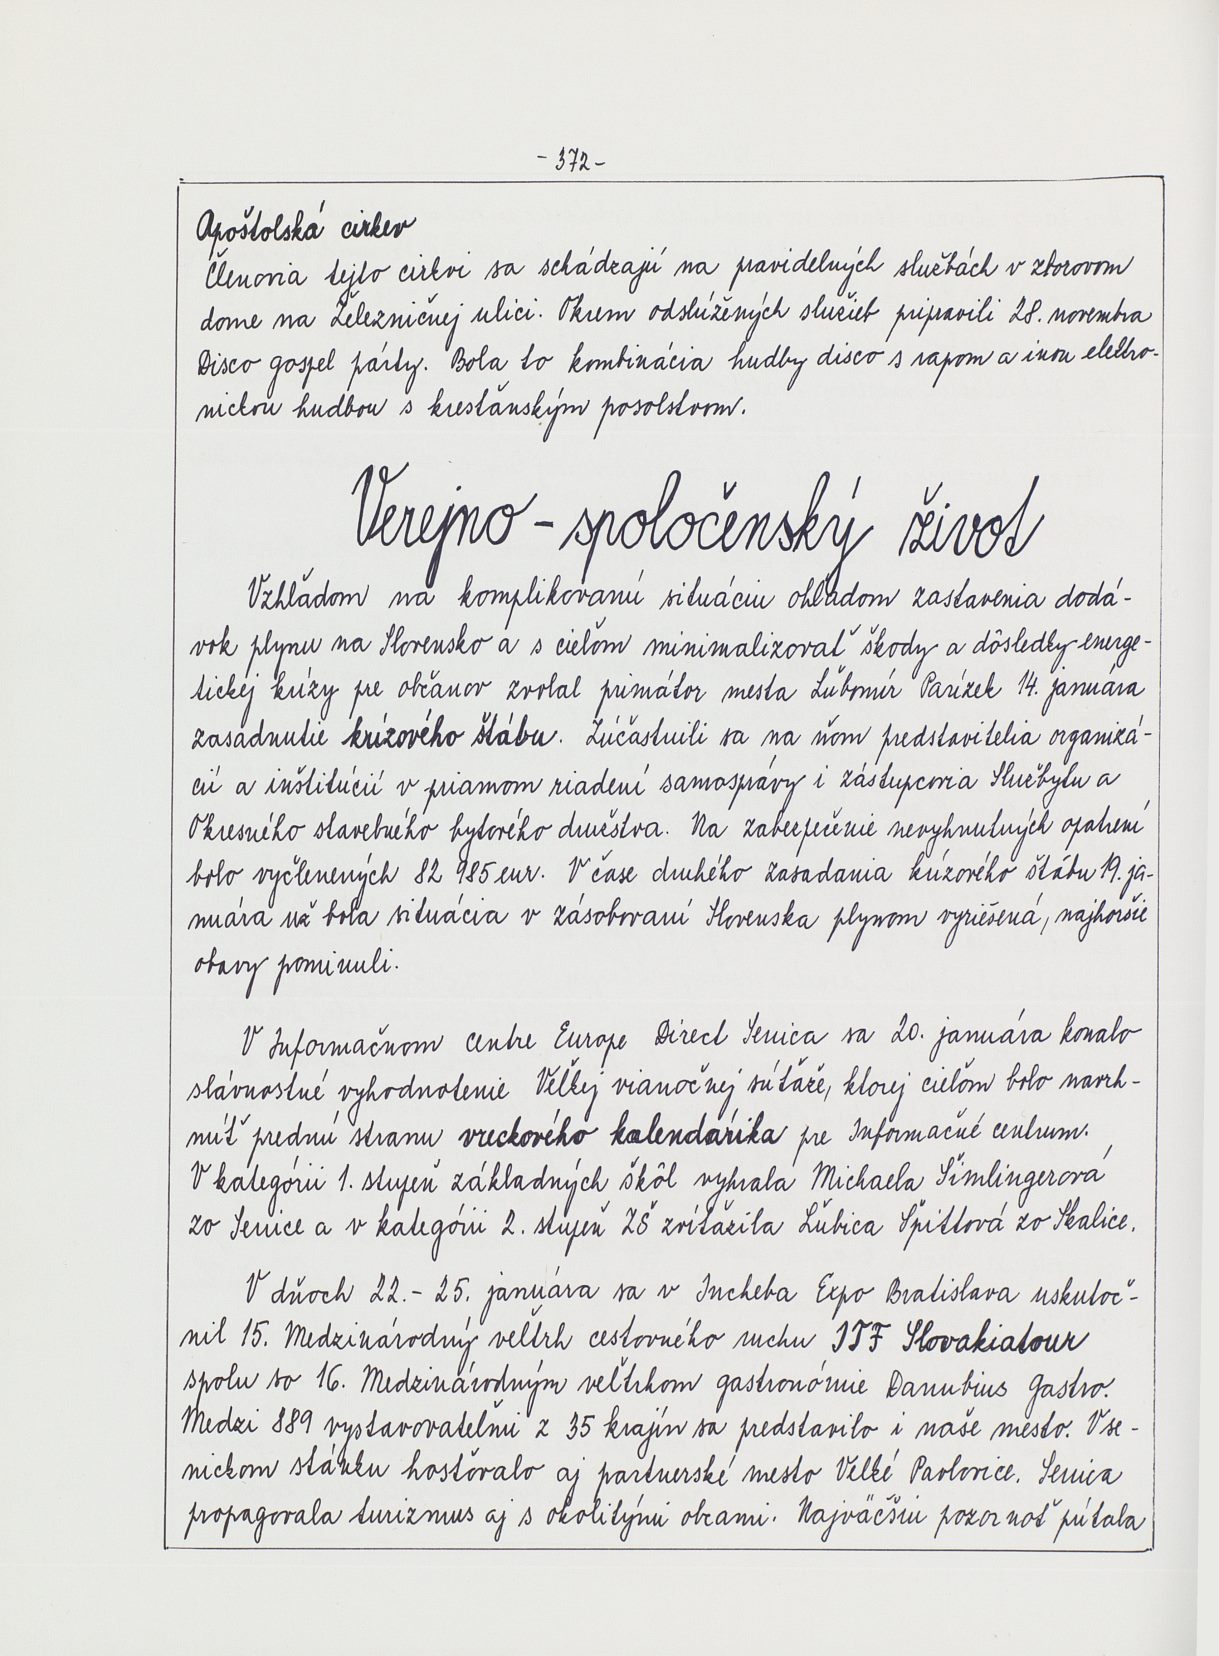 - 372 -
Apoštolská cirkev
Členovia tejto cirkvi sa schádzajú na pravidelných službách v zborovom
dome na Železničnej ulici. Okrem odslúžených služieb pripravili 28. novembra
Disco gospel párty. Bola to kombinácia hudby disco s rapom a inou elektro-
nickou hudbou s kresťanským posolstvom.
Verejno - spoločenský život
Vzhľadom na komplikovanú situáciu ohľadom zastavenia dodá-
vok plynu na Slovensko a s cieľom minimalizovať škody a dôsledky energe-
tickej krízy pre občanov zvolal primátor mesta Ľubomír Parízek 14. januára
zasadnutie krízového štábu. Zúčastnili sa na ňom predstavitelia organizá-
cií a inštitúcií v priamom riadení samosprávy i zástupcovia Službytu a
Okresného stavebného bytového družstva. Na zabezpečenie nevyhnutných opatrení
bolo vyčlenených 82 985 eur. V čase druhého zasadania krízového štábu 19. ja-
nuára už bola situácia v zásobovaní Slovenska plynom vyriešená, najhoršie
obavy pominuli.
V Informačnom centre Europe Direct Senica sa 20. januára konalo
slávnostné vyhodnotenie Veľkej vianočnej súťaže, ktorej cieľom bolo navrh-
núť prednú stranu vreckového kalendárika pre Informačné centrum.
V kategórii 1. stupeň základných škôl vyhrala Michaela Šimlingerová
zo Senice a v kategórii 2. stupeň ZŠ zvíťazila Ľubica Špittová zo Skalice.
V dňoch 22. - 25. januára sa v Incheba Expo Bratislava uskutoč-
nil 15. Medzinárodný veľtrh cestovného ruchu ITF Slovakiatour
spolu so 16. Medzinárodným veľtrhom gastronómie Danubius Gastro.
Medzi 889 vystavovateľmi z 35 krajín sa predstavilo i naše mesto. V se-
nickom stánku hosťovalo aj partnerské mesto Velké Pavlovice. Senica
propagovala turizmus aj s okolitými obcami. Najväčšiu pozornosť pútala